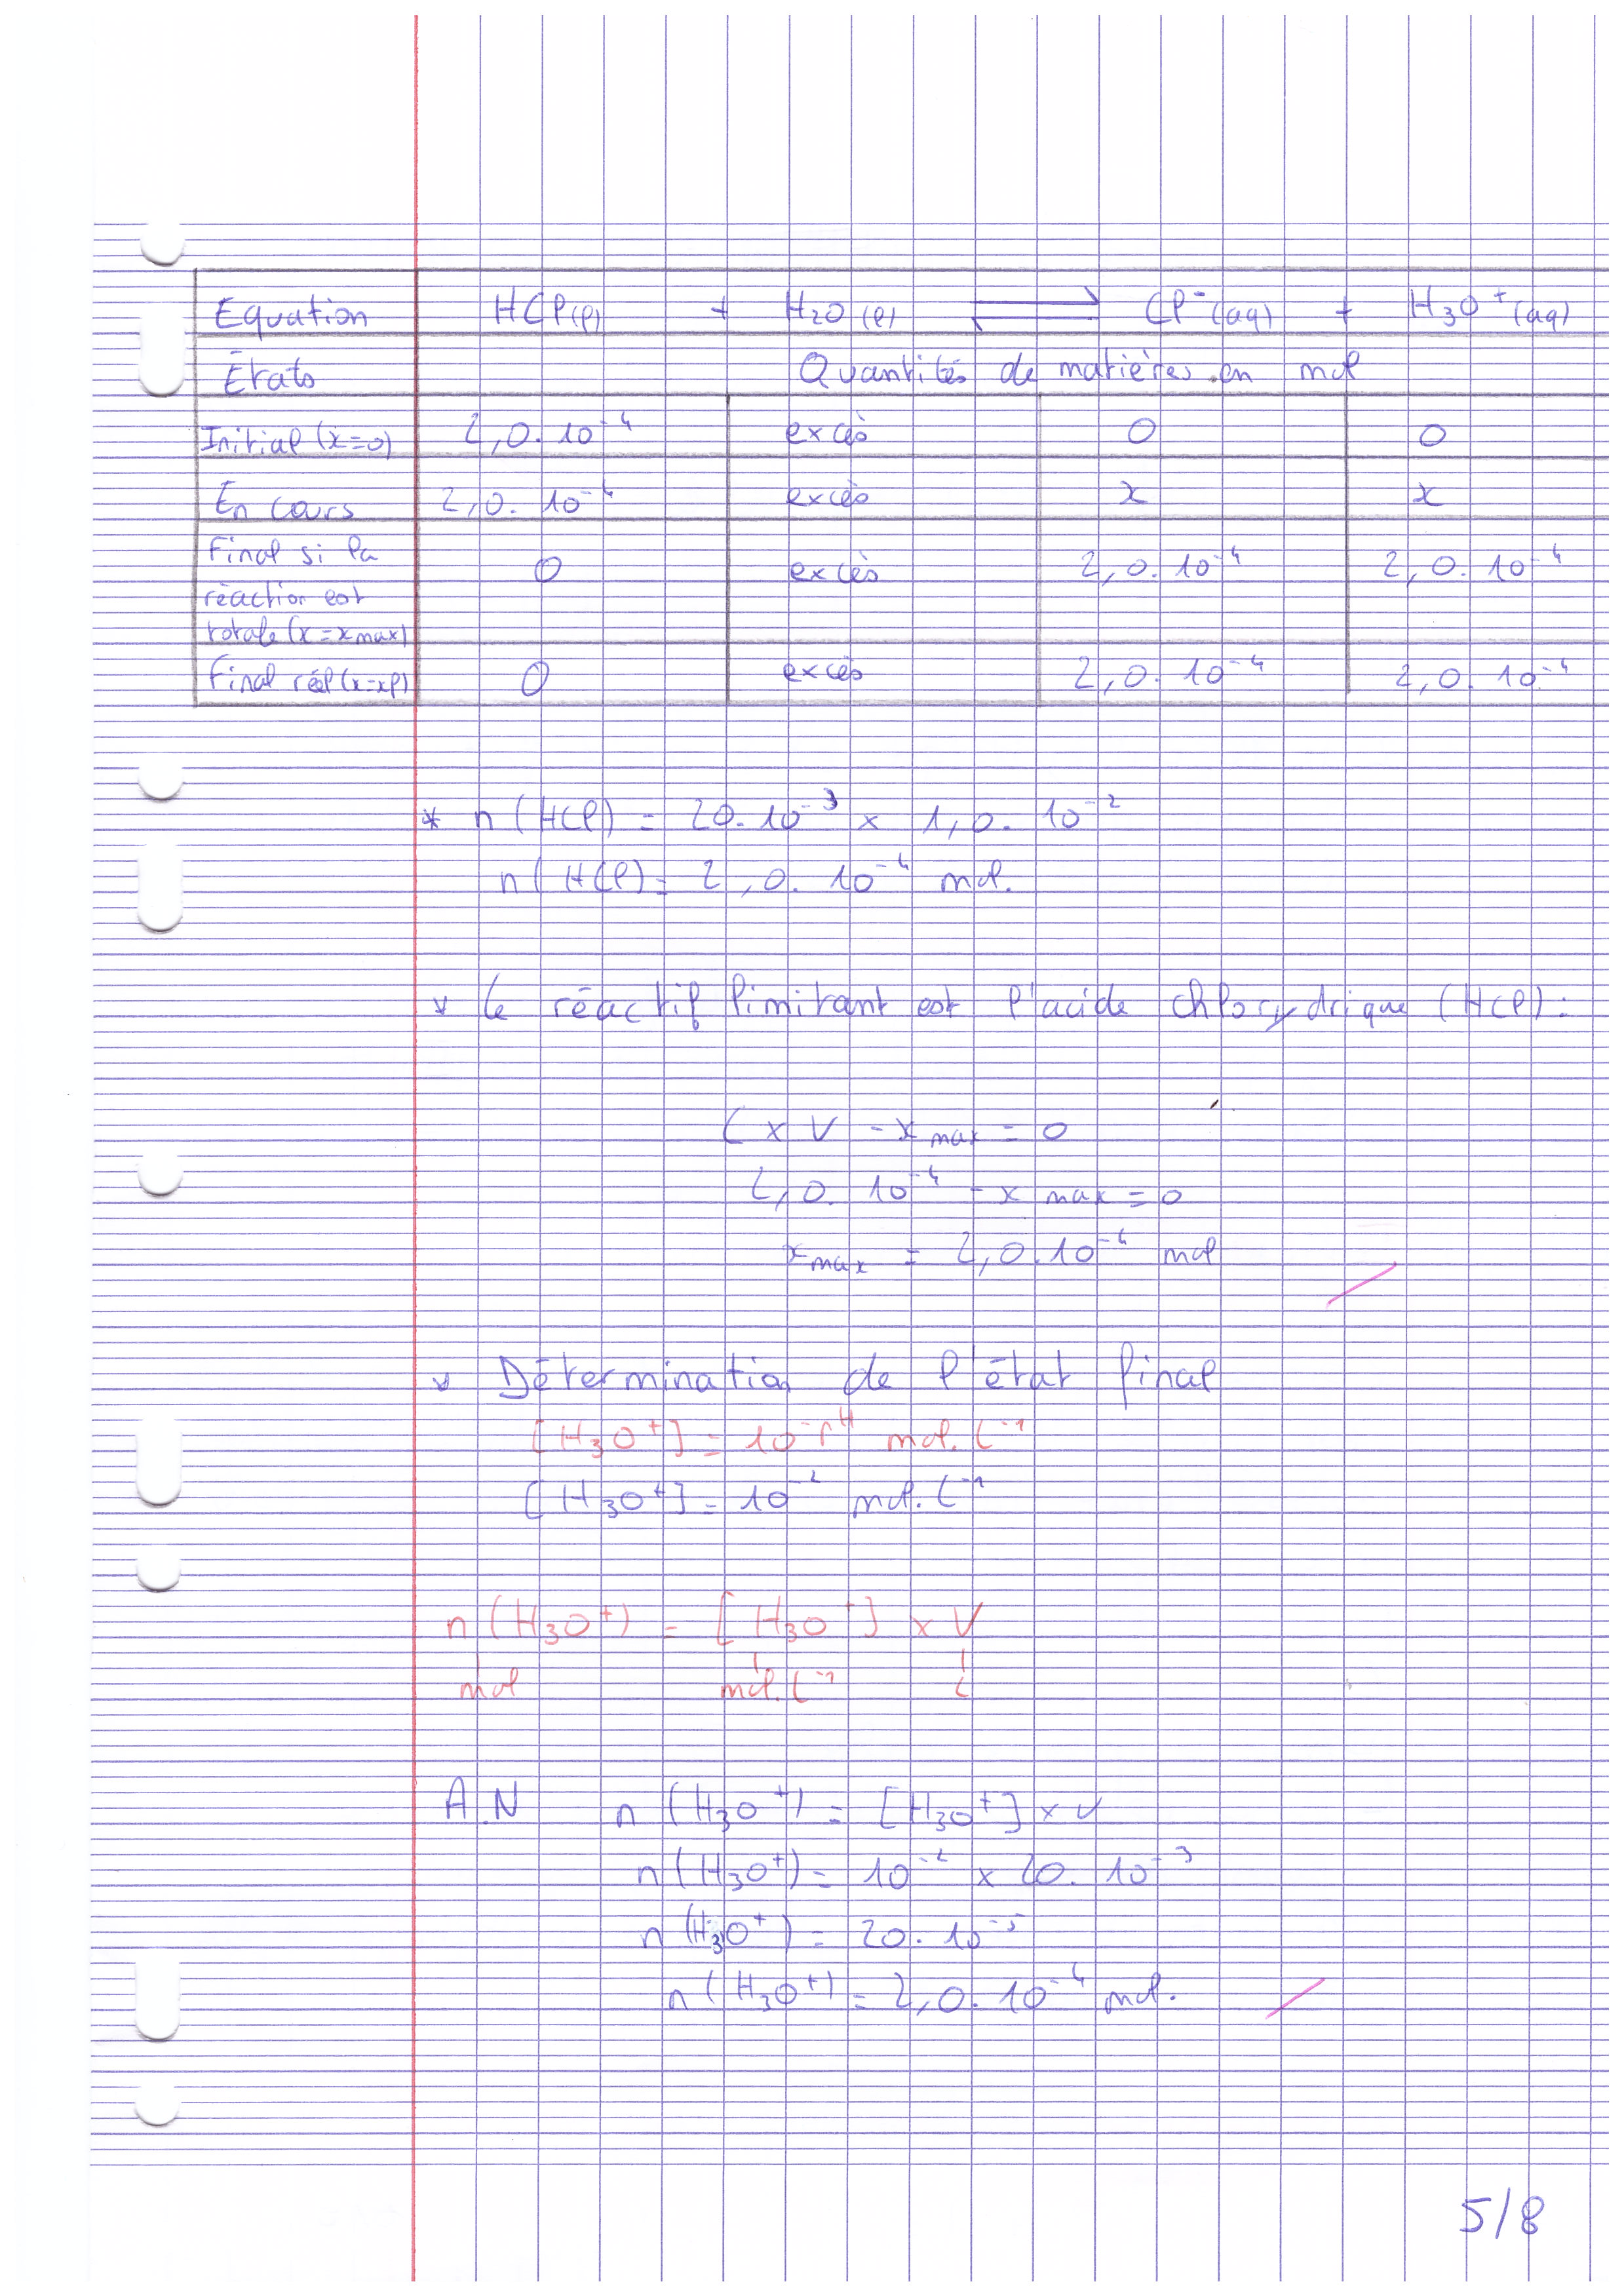 Equation HCl(l) + H2O(l) ⇌ Cl-(aq) + H3O+(aq)
États Quantités de matières en mol
Initial (x=0) 2,0. 10^-4 excès 0 0
En cours 2,0. 10^-4 excès x x
Final si la
réaction est
totale (x=x max) 0 excès 2,0. 10^-4 2,0. 10^-4
Final réel (x=xf) 0 excès 2,0. 10^-4 2,0. 10^-4
* n(HCl) = 20. 10^-3 × 1,0. 10^-2
n(HCl) = 2,0. 10^-4 mol.
* Le réactif limitant est l'acide chlorydrique (HCl) :
C × V - x max = 0
2,0. 10^-4 - x max = 0
x max = 2,0. 10^-4 mol
* Détermination de l'état final
[H3O+] = 10^-pH mol. L^-1
[H3O+] = 10^-2 mol. L^-1
n(H3O+) = [H3O+] × V
mol mol. L^-1 L
A.N n(H3O+) = [H3O+] × V
n(H3O+) = 10^-2 × 20. 10^-3
n(H3O+) = 20. 10^-5
n(H3O+) = 2,0. 10^-4 mol.
5/8